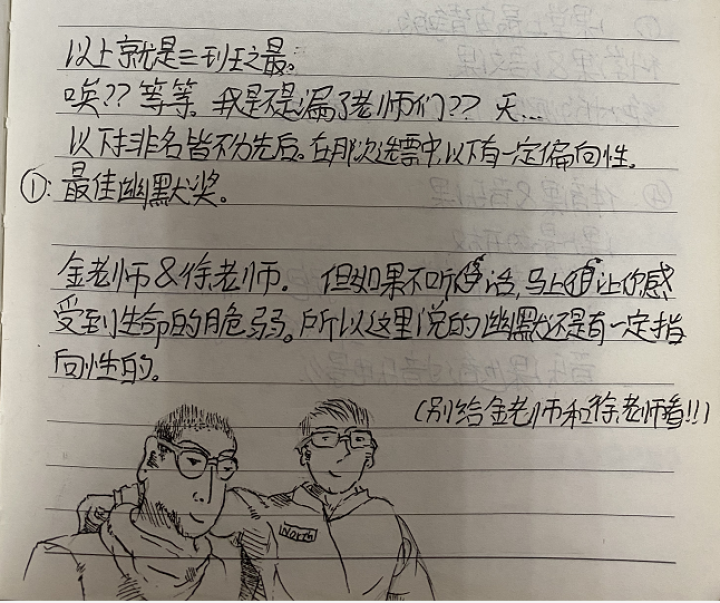 以上就是三班之最。
唉??等等。我是不是漏了老师们??天...
以下排名皆不分先后。在那次选票中,以下有一定偏向性。
①:最佳幽默奖。
金老师&徐老师。但如果不听话,马上让你感
受到生命的脆弱。所以这里说的幽默还是有一定指
向性的。
(别给金老师和徐老师看!!)
NORTH